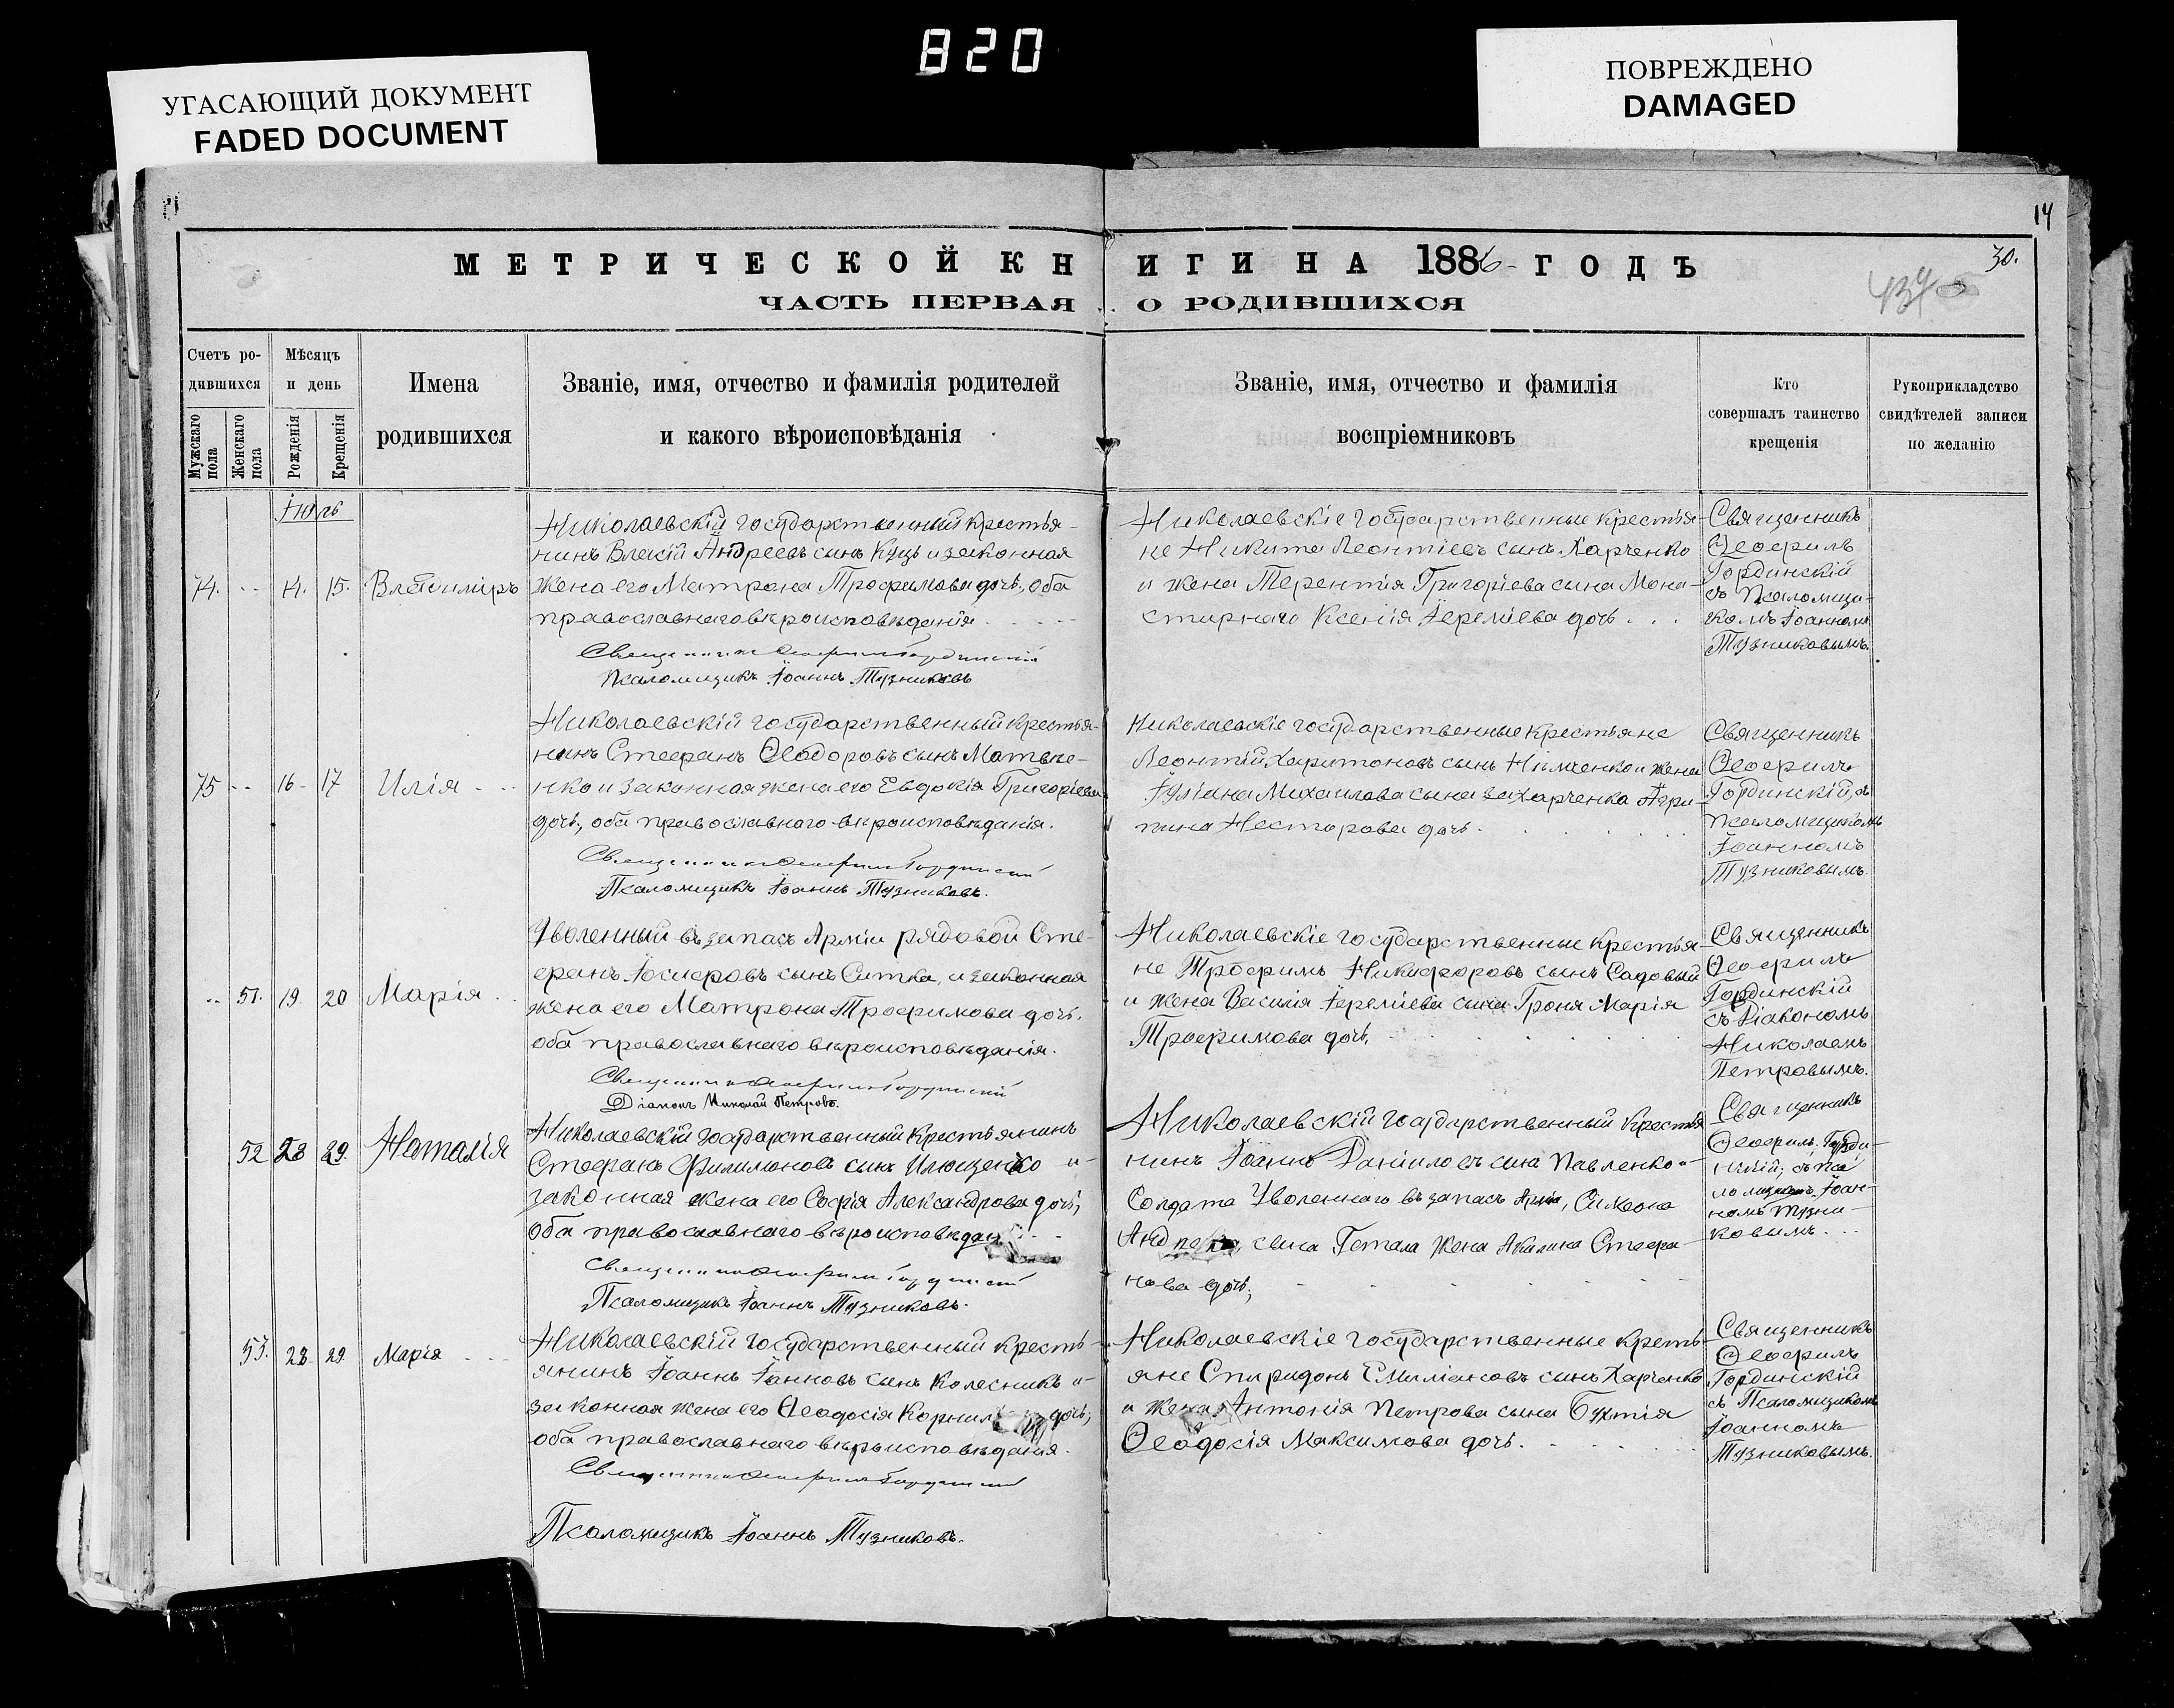 820
УГАСАЮЩИЙ ДОКУМЕНТ
FADED DOCUMENT
ПОВРЕЖДЕНО
DAMAGED
14
МЕТРИЧЕСКОЙ КНИГИ НА 1886 ГОДЪ
30.
ЧАСТЬ ПЕРВАЯ О РОДИВШИХСЯ
434
Счетъ ро-
дившихся
Мужскаго пола
Женскаго пола
Мѣсяцъ
и день
Рожденія
Крещенія
Имена
родившихся
Званіе, имя, отчество и фамилія родителей
и какого вѣроисповѣданія
Званіе, имя, отчество и фамилія
воспріемниковъ
Кто
совершалъ таинство
крещенія
Рукоприкладство
свидѣтелей записи
по желанію
Іюль
74. 14. 15. Владиміръ
Николаевскій государственный крестья-
нинъ Алексій Андреевъ сынъ Куцъ и законная
жена его Матрона Трофимова дочь, оба
православнаго вѣроисповѣданія
Священникъ Ѳеофилъ Гординскій
Псаломщикъ Іоаннъ Тузниковъ
Николаевскіе государственные крестья-
не Никита Леонтіевъ сынъ Харченко
и жена Терентія Григоріева сына Мона-
стирнаго Ксенія Іереміева дочь
Священникъ
Ѳеофилъ
Гординскій
съ Псаломщи-
комъ Іоанномъ
Тузниковымъ.
75 16 17 Илія
Николаевскій государственный крестья-
нинъ Стефанъ Ѳеодоровъ сынъ Матвіе-
нко и законная жена его Евдокія Григоріева
дочь, оба православнаго вѣроисповѣданія.
Священникъ Ѳеофилъ Гординскій
Псаломщикъ Іоаннъ Тузниковъ.
Николаевскіе государственные крестьяне
Леонтій Харитоновъ сынъ Нѣмченко и жена
Іуліана Михаилова сына Захарченка Агри-
пина Несторова дочь.
Священникъ
Ѳеофилъ
Гординскій, съ
псаломщикомъ
Іоанномъ
Тузниковымъ.
51. 19. 20 Марія
Уволенный въ запасъ Арміи рядовой Сте-
фанъ Іосифовъ сынъ Ситка, и законная
жена его Матрона Трофимова дочь,
оба православнаго вѣроисповѣданія.
Священникъ Ѳеофилъ Гординскій
Діаконъ Николай Петровъ.
Николаевскіе государственные крестья-
не Трофимъ Никифоровъ сынъ Садовый
и жена Василія Іереміева сына Гроня Марія
Трофимова дочь,
Священникъ
Ѳеофилъ
Гординскій
съ Діакономъ
Николаемъ
Петровымъ.
52 28 29. Наталія
Николаевскій государственный крестьянинъ
Стефанъ Филимоновъ сынъ Илющенко и
законная жена его Софія Александрова дочь,
оба православнаго вѣроисповѣдан
Священникъ Ѳеофилъ Гординскій
Псаломщикъ Іоаннъ Тузниковъ.
Николаевскій государственный крестья
нинъ Іоаннъ Даніиловъ сынъ Павленко и
Солдата Уволеннаго въ запасъ Арміи, Симеона
сына Гетала жена Акилина Стефа
нова дочь,
Священникъ
Ѳеофилъ Горди-
нскій, съ пса
ломщикомъ Іоан-
номъ Тузни-
ковымъ.
53. 28. 29. Марія
Николаевскій государственный кресть-
янинъ Іоаннъ Іоанновъ сынъ Колесникъ и
законная жена его Ѳеодосія Корнил дочь,
оба православнаго вѣроисповѣданія.
Священникъ Ѳеофилъ Гординскій
Псаломщикъ Іоаннъ Тузниковъ.
Николаевскіе государственные кресть-
яне Спиридонъ Емиліановъ сынъ Харченко
и жена Антонія Петрова сына Бухтія
Ѳеодосія Максимова дочь.
Священникъ
Ѳеофилъ
Гординскій
съ Псаломщикомъ
Іоанномъ
Тузниковымъ.